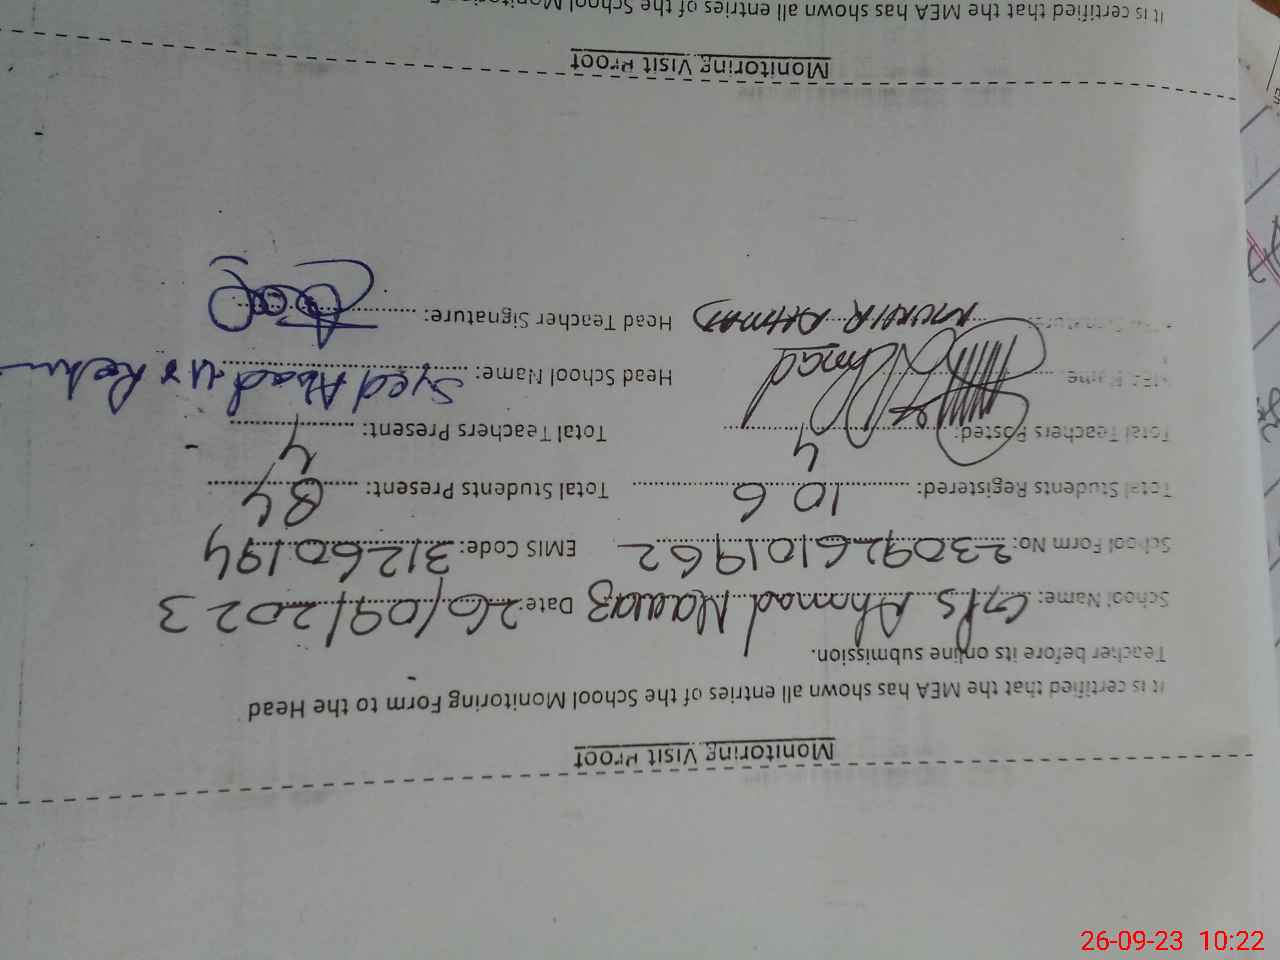 Monitoring Visit Proof
It is certified that the MEA has shown all entries of the School Monitoring Form to the Head
Teacher before its online submission.
School Name: G/PS Ahmad Nawaz Date: 26/09/2023
School Form No: 230926101962 EMIS Code: 31260194
Total Students Registered: 106 Total Students Present: 84
Total Teachers Posted: 4 Total Teachers Present: 4
MEA Name Head School Name: Syed Abad ur Rehm
MUNIR AHMAD Head Teacher Signature:
Monitoring Visit Proof
It is certified that the MEA has shown all entries of the School Monitoring
26-09-23 10:22